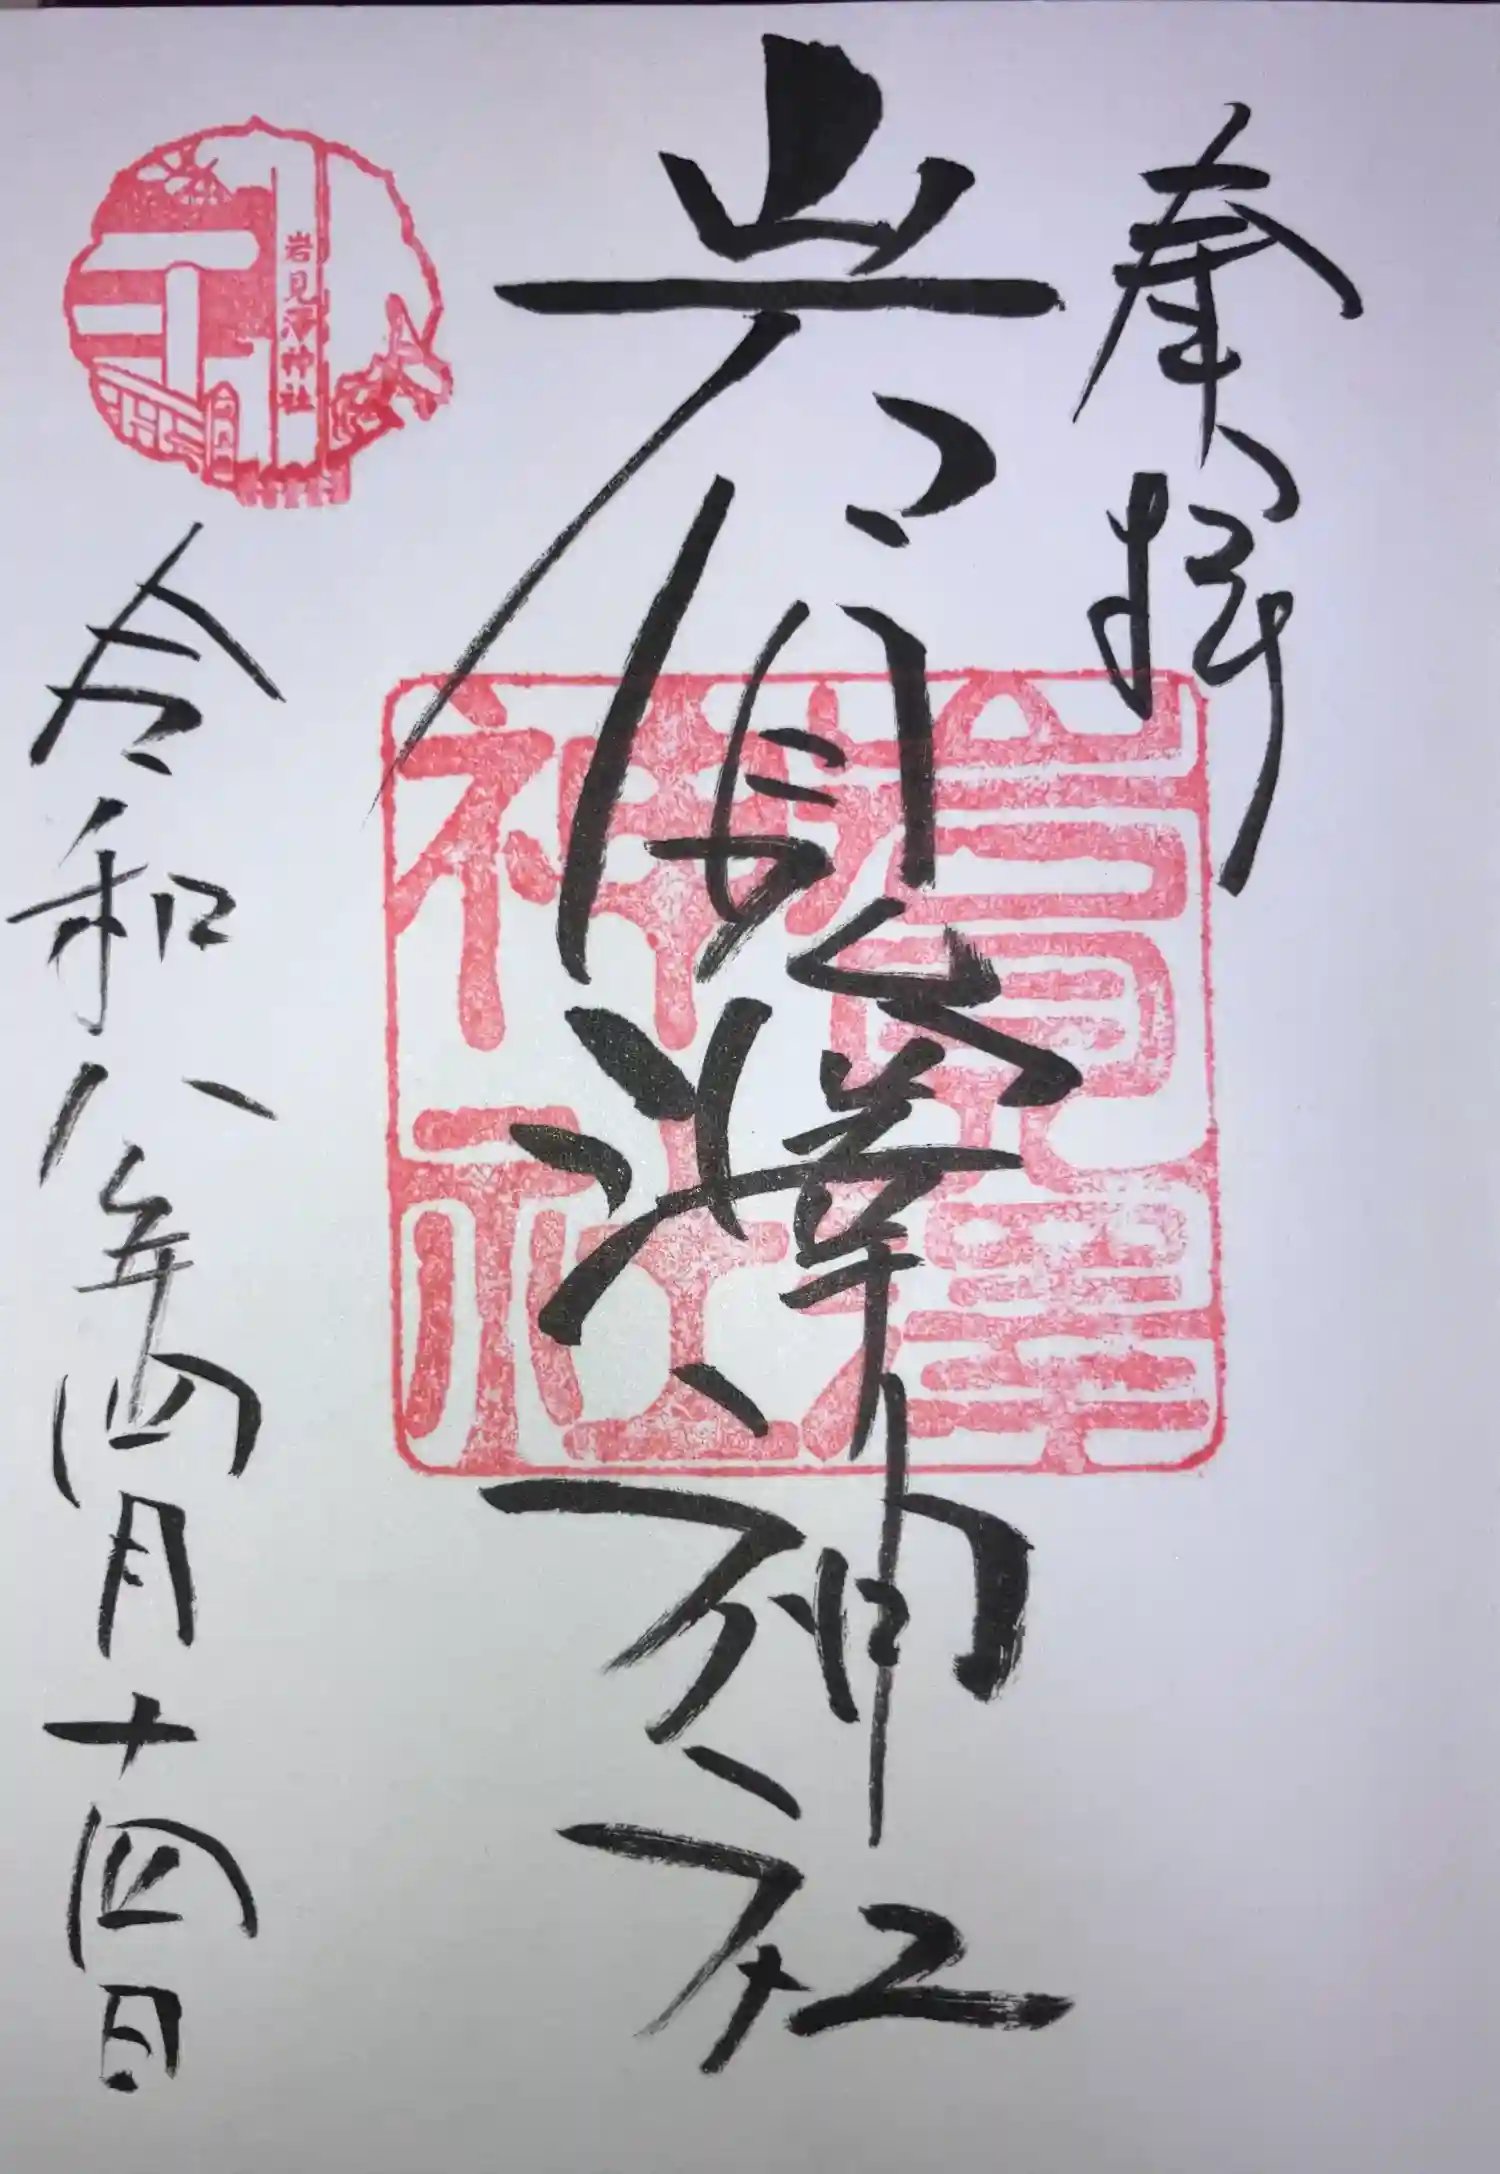 奉拝
岩見澤神社
岩見澤神社
岩見澤神社
令和八年四月十四日